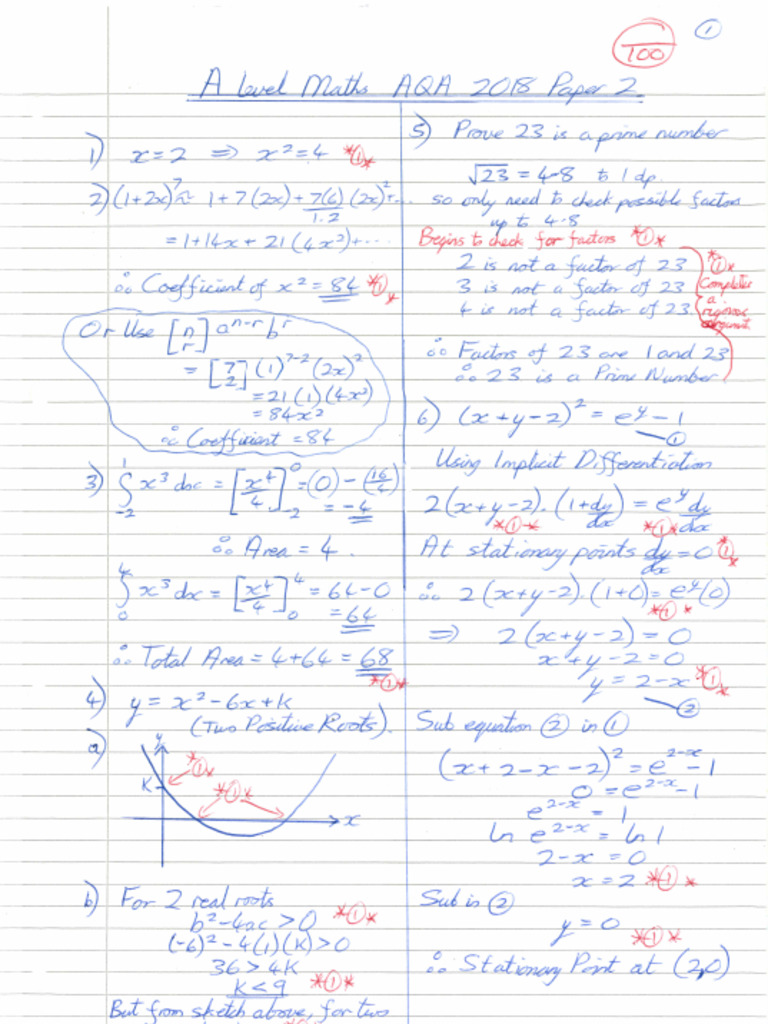 ①
/100
A Level Maths AQA 2018 Paper 2
1) x=2 ⇒ x²=4 *①*
2) (1+2x)⁷ ≈ 1+7(2x)+7(6)/1.2 (2x)²+...
=1+14x+21(4x²)+...
∴ Coefficient of x² = 84 *①*
Or Use [n r] aⁿ⁻ʳ bʳ
= [7 2] (1)⁷⁻² (2x)²
=21(1)(4x²)
=84x²
∴ Coefficient = 84
3) ∫₋₂¹ x³ dx = [x⁴/4]₋₂⁰ = (0) - (16/4)
= -4
∴ Area = 4.
∫₀⁴ x³ dx = [x⁴/4]₀⁴ = 64-0
=64
∴ Total Area = 4+64 = 68
*①*
4) y = x²-6x+k
(Two Positive Roots).
a)
y
*①*
K
*①*
x
b) For 2 real roots
b²-4ac >0 *①*
(-6)²-4(1)(K)>0
36>4K
K<9 *①*
But from sketch above, for two
5) Prove 23 is a prime number
√23 = 4.8 to 1dp.
so only need to check possible factors
up to 4.8
Begins to check for factors *①*
2 is not a factor of 23
3 is not a factor of 23
4 is not a factor of 23.
*①*
Completes
a
rigorous
argument.
∴ Factors of 23 are 1 and 23
∴ 23 is a Prime Number
6) (x+y-2)² = eʸ-1
①
Using Implicit Differentiation
2(x+y-2).(1+dy/dx) = eʸ dy/dx
*①* *①*
At stationary points dy/dx = 0 *①*
∴ 2(x+y-2).(1+0)=eʸ(0)
*①*
⇒ 2(x+y-2) = 0
x+y-2=0
y = 2-x *①*
②
Sub equation ② in ①
(x+2-x-2)² = e²⁻ˣ-1
0 = e²⁻ˣ-1
e²⁻ˣ = 1
ln e²⁻ˣ = ln 1
2-x = 0
x = 2 *①*
Sub in ②
y = 0
*①*
∴ Stationary Point at (2,0)